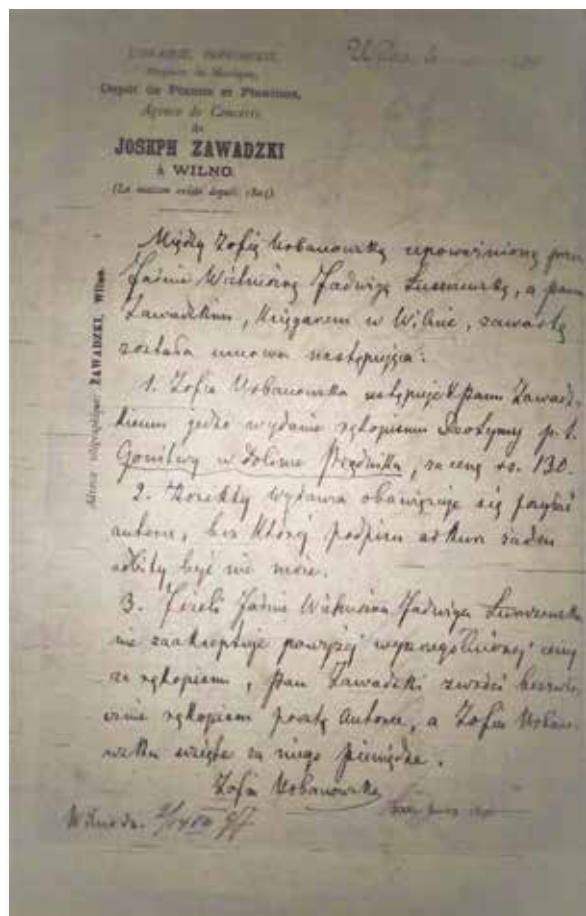 LIBRAIRIE, IMPRIMERIE,
Magasin de Musique,
Depôt de Pianos et Pianinos,
Agence de Concerts
de
JOSEPH ZAWADZKI
à WILNO.
(La maison existe depuis 1805).
Wilno, le
Adresse télégraphique: ZAWADZKI, Wilno.
Między Zofią Urbanowską upoważnioną przez
Jaśnie Wielmożną Jadwigę Łuszczewską, a panem
Zawadzkim, księgarzem w Wilnie, zawartą
została umowa następująca:
1. Zofia Urbanowska ustępuje panu Zawadz-
kiemu jedno wydanie rękopismu Deotymy p. t.
Gonitwy w dolinie Prądnika, za cenę rs. 130.
2. Korekty wydawca obowiązuje się posyłać
autorce, bez której podpisu arkusz żaden
odbity być nie może.
3. Jeżeli Jaśnie Wielmożna Jadwiga Łuszczewska
nie zaakceptuje powyżej wyszczególnionej ceny
za rękopism, pan Zawadzki zwróci
rękopism pocztą autorce, a Zofia Urban-
owska wzięte za niego pieniądze.
Zofia Urbanowska
Wilno d.